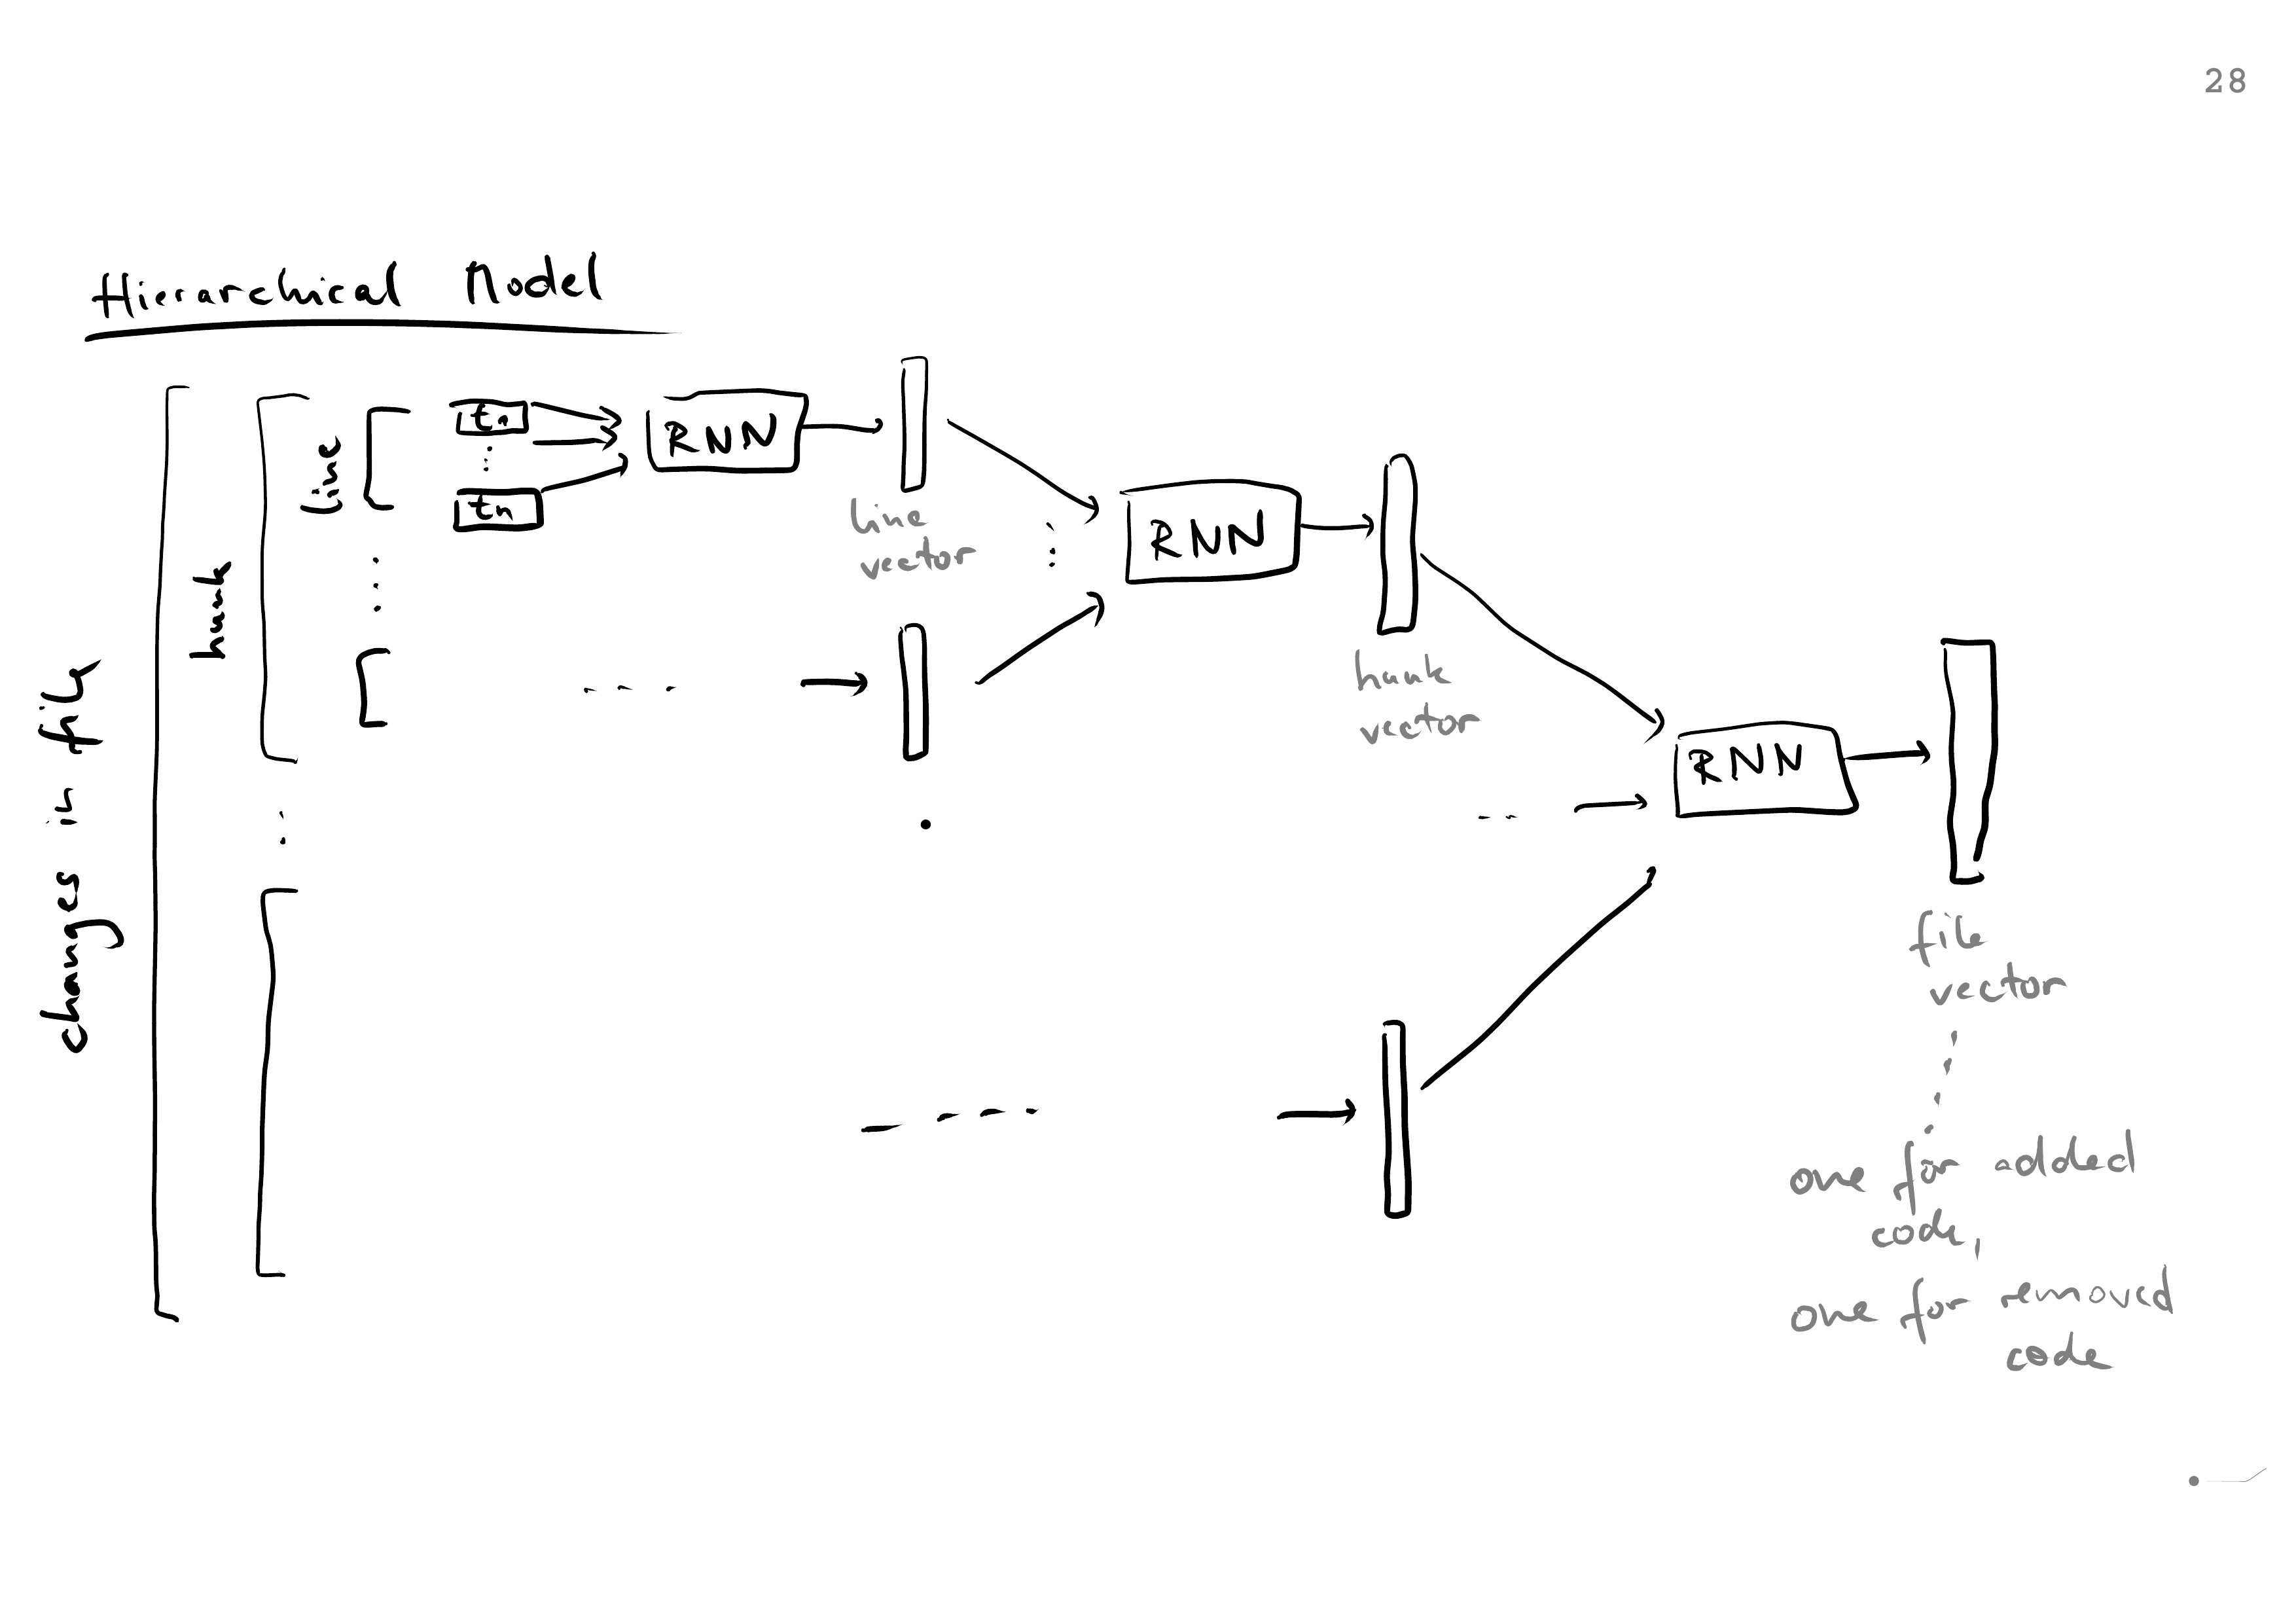 28
Hierarchical Model
changes in file
hunk
line
tn
RNN
line
vector
RNN
hunk
vector
RNN
file
vector
one for added
code,
one for removed
code